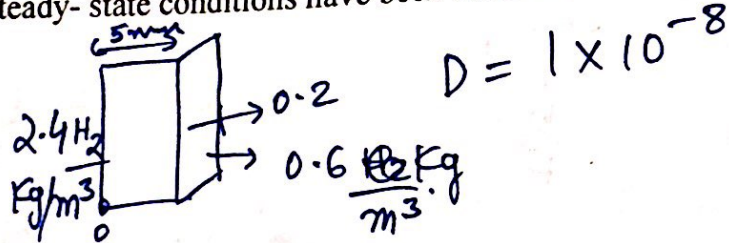 teady- state conditions have been
5mm
D = 1 × 10⁻⁸
0.2
2.4 H₂
Kg/m³
0.6 Kg
m³
0